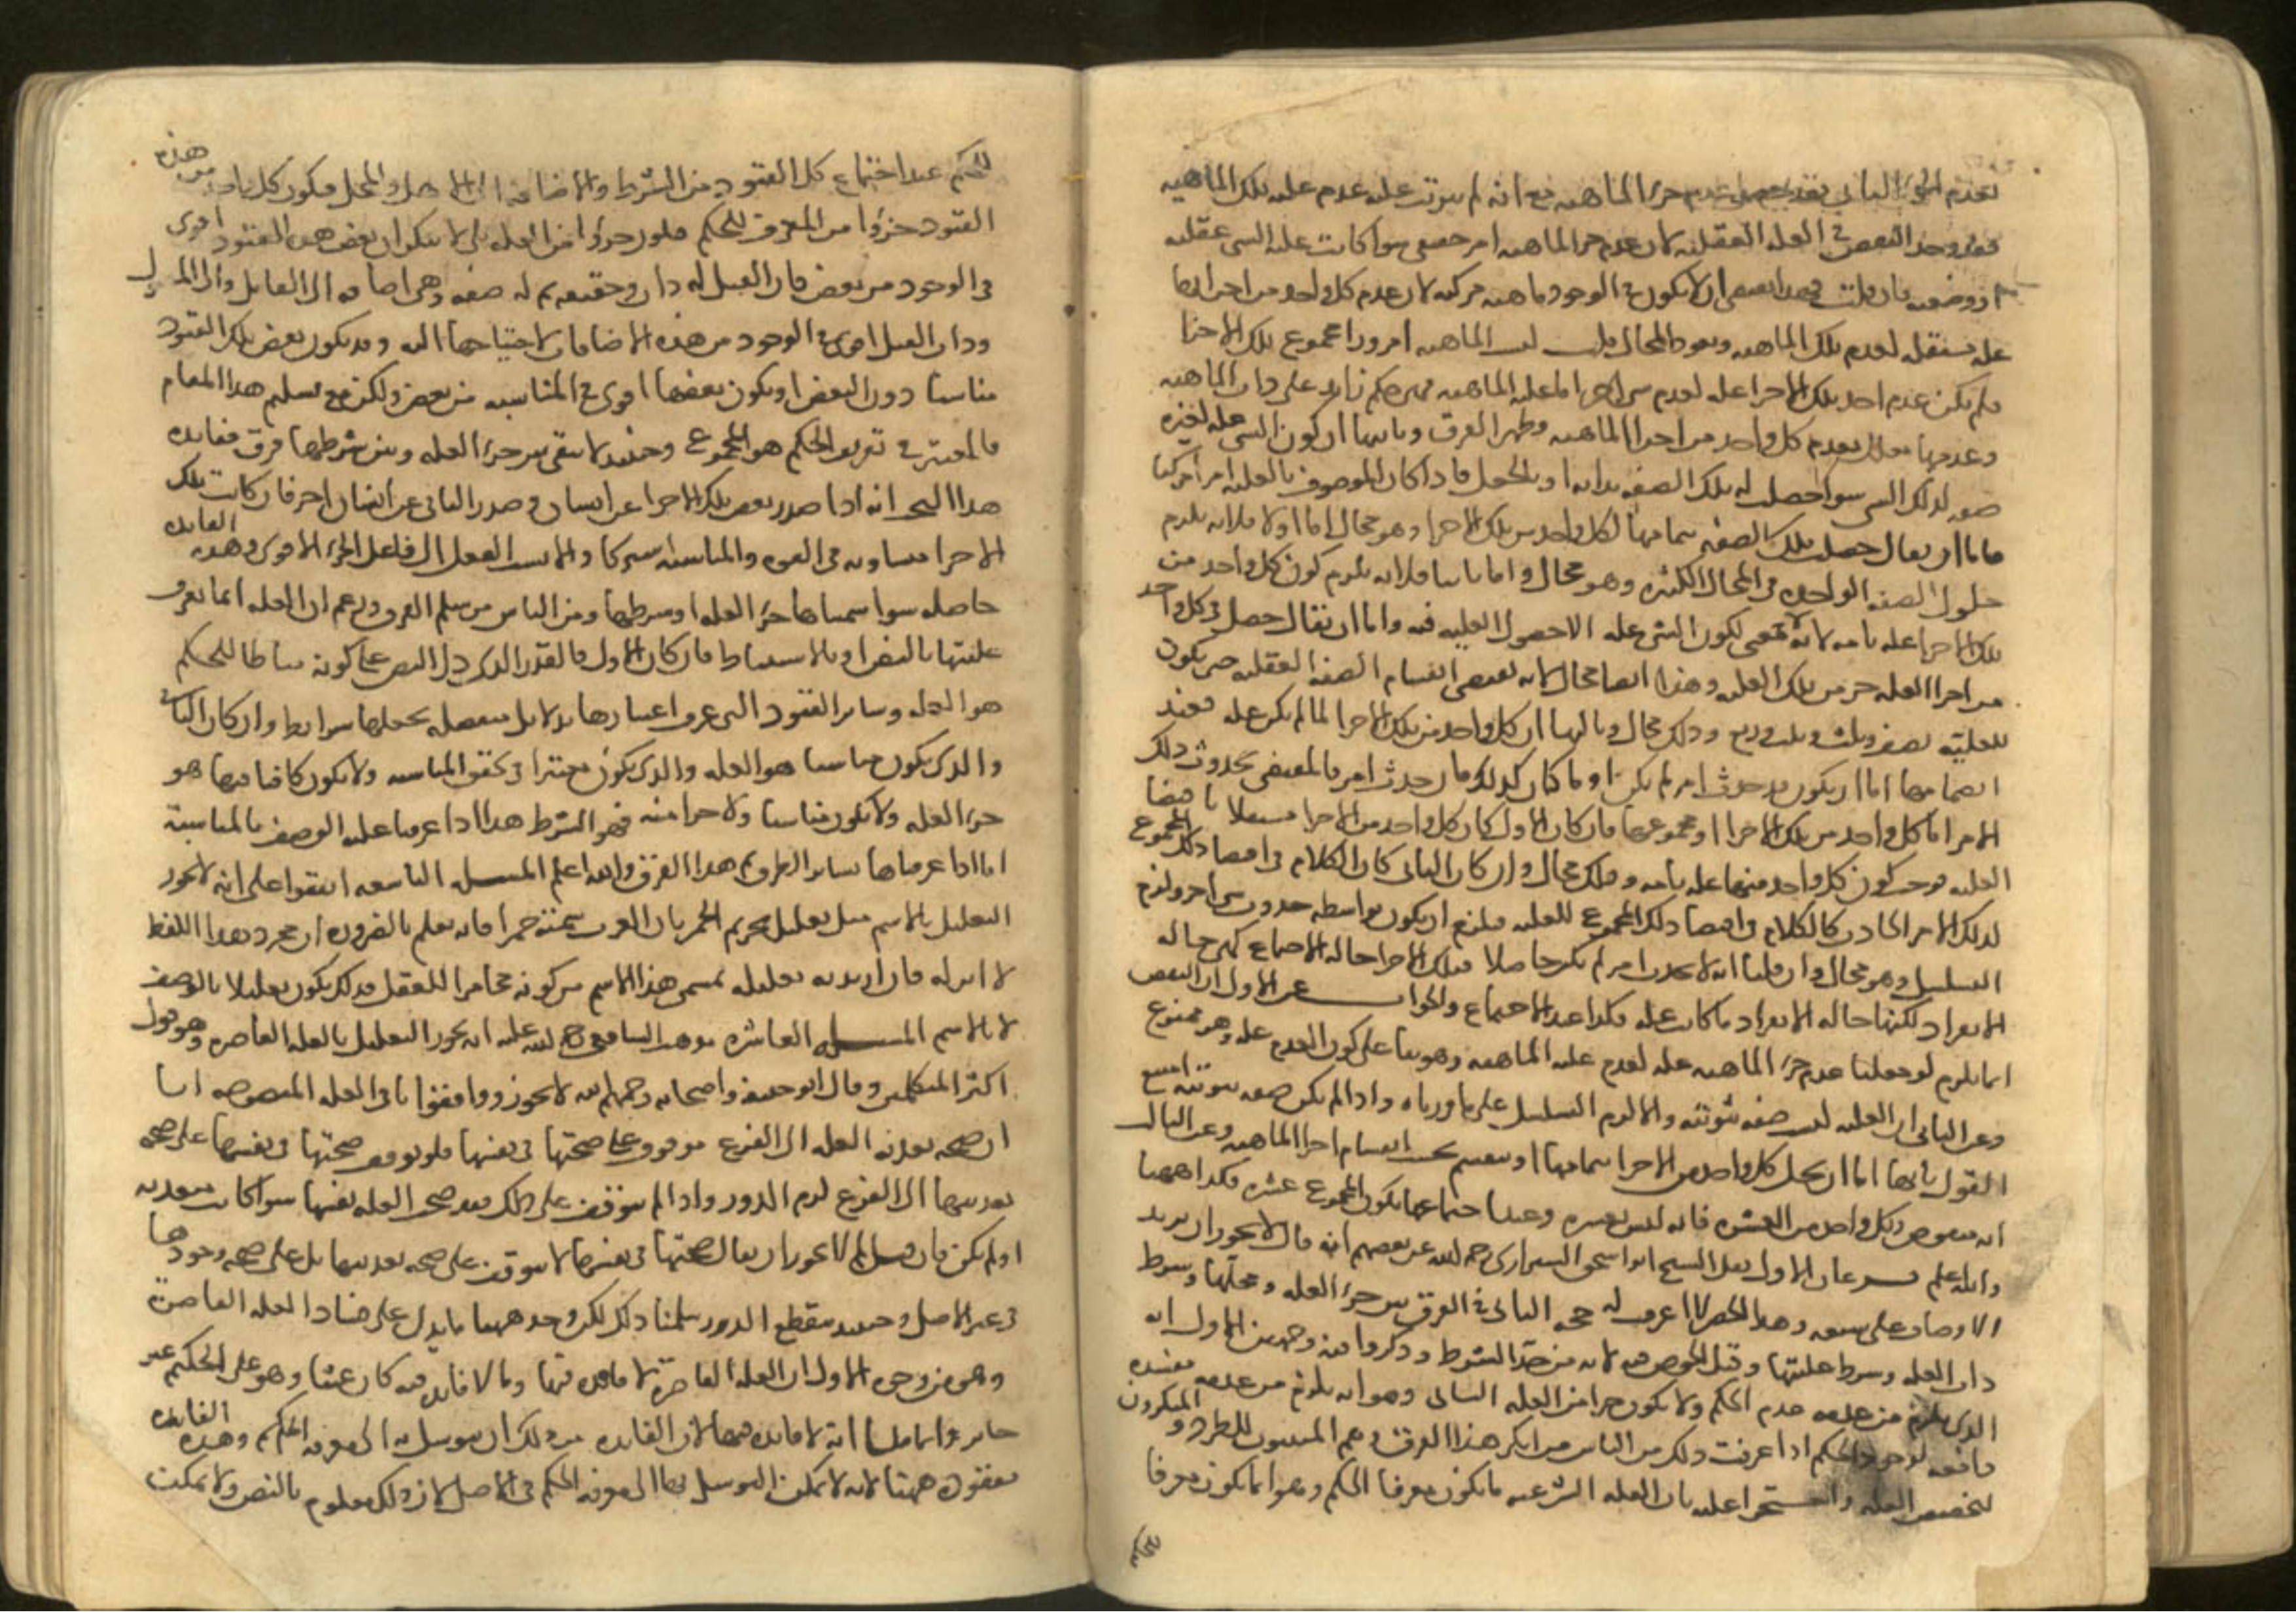 لعدم الجزء الثاني فقد حصل عدم جزء الماهية مع انه لم يترتب عليه عدم علية تلك الماهية
فقد وجد النقض في العلة العقلية لان عدم جزء الماهية امر حقيقي سوا كانت علية الشي عقلية
او وضعية فان قلت فهذا يقتضي ان لا يكون في الوجود ماهية مركبة لان عدم كل واحد من اجزائها
علة مستقلة لعدم تلك الماهية ويعود المحال قلت ليست الماهية امرا وراء مجموع تلك الاجزا
فلم يكن عدم احد تلك الاجزا علة لعدم شي اخر اما علية الماهية فهي حكم زائد على ذات الماهية
وعدمها معلل بعدم كل واحد من اجزا الماهية وظهر الفرق وثانيها ان كون الشي علة لغيره
صفة لذلك الشي سوا حصلت له تلك الصفة بذاته او بالجعل فاذا كان الموصوف بالعلية امرا مركبا
فاما ان يقال حصلت تلك الصفة بتمامها لكل واحد من تلك الاجزا وهو محال اما اولا فلانه يلزم
حلول الصفة الواحدة في المحال الكثيرة وهو محال واما ثانيا فلانه يلزم كون كل واحد من
تلك الاجزا علة تامة لانه لا معنى لكون الشي علة الا حصول العلية فيه واما ان يقال حصل في كل واحد
من اجزا العلة جزء من تلك العلية وهذا ايضا محال لانه يقتضي انقسام الصفة العقلية حتى يكون
للعلية نصف وثلث وربع وذلك محال وثالثها ان كل واحد من تلك الاجزا لما لم يكن علة فعند
انضمامها اما ان يكون قد حدث امر لم يكن او ما كان كذلك فان حدث امر فالمقتضي لحدوث ذلك
الامر اما كل واحد من تلك الاجزا او مجموعها فان كان الاول كان كل واحد من الاجزا مستقلا باقتضا
العلية فوجب كون كل واحد منها علة تامة وذلك محال وان كان الثاني كان الكلام في اقتضا ذلك المجموع
لذلك الامر الحادث كالكلام في اقتضا ذلك المجموع للعلية فيلزم ان يكون بواسطة حدوث شي اخر ولزم
التسلسل وهو محال وان قلنا انه لا يحدث امر لم يكن حاصلا فتلك الاجزا حالة الاجتماع كهي حالة
الانفراد لكنها حالة الانفراد ما كانت علة فكذا عند الاجتماع والجواب عن الاول ان النقض
انما يلزم لو جعلنا عدم جزء الماهية علة لعدم علية الماهية وهو بنا على كون العدم علة وهو ممنوع
وعن الثاني ان العلية ليست صفة ثبوتية والا لزم التسلسل على ما قررناه واذا لم تكن صفة ثبوتية امتنع
القول بانها اما ان تحل كل واحد من الاجزا بتمامها او تنقسم بحسب انقسام اجزا الماهية وعن الثالث
انه منقوض بكل واحد من العشرة فانه ليس بعشرة وعند اجتماعها يكون المجموع عشرة فكذا ههنا
والله اعلم فرعان الاول نقل الشيخ ابو اسحق الشيرازي رحمه الله عن بعضهم انه قال لا يجوز ان يزيد
الاوصاف على سبعة وهذا الحصر لا اعرف له حجة الثاني في الفرق بين جزء العلة ومحلها وشرط
ذات العلة وشرط عليتها وقبل الخوض فيه لابد من حد الشرط وذكروا فيه وجهين الاول انه
الذي يلزم من عدمه عدم الحكم ولا يكون جزا من العلة الثاني وهو انه يلزم من عدمه مفسدة
دافعة لوجود الحكم اذا عرفت ذلك من الناس من انكر هذا الفرق وهم المثبتون للطرد والمنكرون
لتخصيص العلة واحتجوا عليه بان العلة الشرعية ما يكون معرفا للحكم وهو انما يكون معرفا
للحكم
للحكم عند اجتماع كل القيود من الشرط والاضافة الى الاهل والمحل فيكون كل واحد من هذه
القيود جزءا من المعرف للحكم فيكون جزءا من العلة بلى لا ينكر ان بعض هذه القيود اقوى
في الوجود من بعض فان القتل له ذات وحقيقة ثم له صفة وهي اضافته الى القاتل والى المقتول
وذات القتل اقوى في الوجود من هذه الاضافات لاحتياجها اليه وقد يكون بعض تلك القيود
مناسبا دون البعض او يكون بعضها اقوى في المناسبة من بعض ولكن مع تسليم هذا المقام
فالمعتبر في تعريف الحكم هو المجموع وحينئذ لا يبقى بين جزء العلة وبين شرطها فرق ففائدة
هذا البحث انه اذا صدر بعض تلك الاجزا عن انسان وصدر الباقي عن انسان اخر فان كانت تلك
الاجزا متساوية في القوة والمناسبة اشتركا والا نسب الفعل الى فاعل الجزء الاقوى وهذه الفائدة
حاصلة سوا سميناها جزء العلة او شرطها ومن الناس من سلم الفرق وزعم ان العلة انما تعرف
عليتها بالنص او بالاستنباط فان كان الاول فالقدر الذي دل النص على كونه مناطا للحكم
هو العلة وسائر القيود التي عرف اعتبارها بدلائل منفصلة نجعلها شرائط وان كان الثاني
والذي يكون مناسبا هو العلة والذي يكون معتبرا في تحقق المناسبة ولا يكون كافيا فيها هو
جزء العلة ولا يكون مناسبا ولا جزا منه فهو الشرط هذا اذا عرفنا علية الوصف بالمناسبة
اما اذا عرفناها بسائر الطرق لم هذا الفرق والله اعلم المسلة التاسعة اتفقوا على انه لا يجوز
التعليل بالاسم مثل تعليل تحريم الخمر بان العرب سمته خمرا فانه نعلم بالضرورة ان مجرد هذا اللفظ
لا اثر له فان اريد به تعليله بمسمى هذا الاسم من كونه مخامرا للعقل فذلك يكون تعليلا بالوصف
لا بالاسم المسلة العاشرة مذهب الشافعي رحمة الله عليه انه يجوز التعليل بالعلة القاصرة وهو قول
اكثر المتكلمين وقال ابو حنيفة واصحابه رحمهم الله لا يجوز ووافقونا في العلة المنصوصة لنا
ان صحة تعدية العلة الى الفرع موقوف على صحتها في نفسها فلو توقف صحتها في نفسها على صحة
تعديتها الى الفرع لزم الدور واذا لم يتوقف على ذلك فقد صحت العلة نفسها سوا كانت متعدية
او لم تكن فان قيل لم لا يجوز ان يقال صحتها في نفسها لا يتوقف على صحة تعديتها بل على صحة وجودها
في غير الاصل وحينئذ ينقطع الدور سلمنا ذلك لكن وجد ههنا ما يدل على فساد العلة القاصرة
وهو من وجوه الاول ان العلة القاصرة لا فائدة فيها وما لا فائدة فيه كان عبثا وهو على الحكيم غير
جائز وانما قلنا انه لا فائدة فيها لان الفائدة من ذلك ان يتوسل به الى معرفة الحكم وهذه الفائدة
مفقودة ههنا لانه لا يمكن التوسل بها الى معرفة الحكم في الاصل لان ذلك معلوم بالنص ولا يمكن